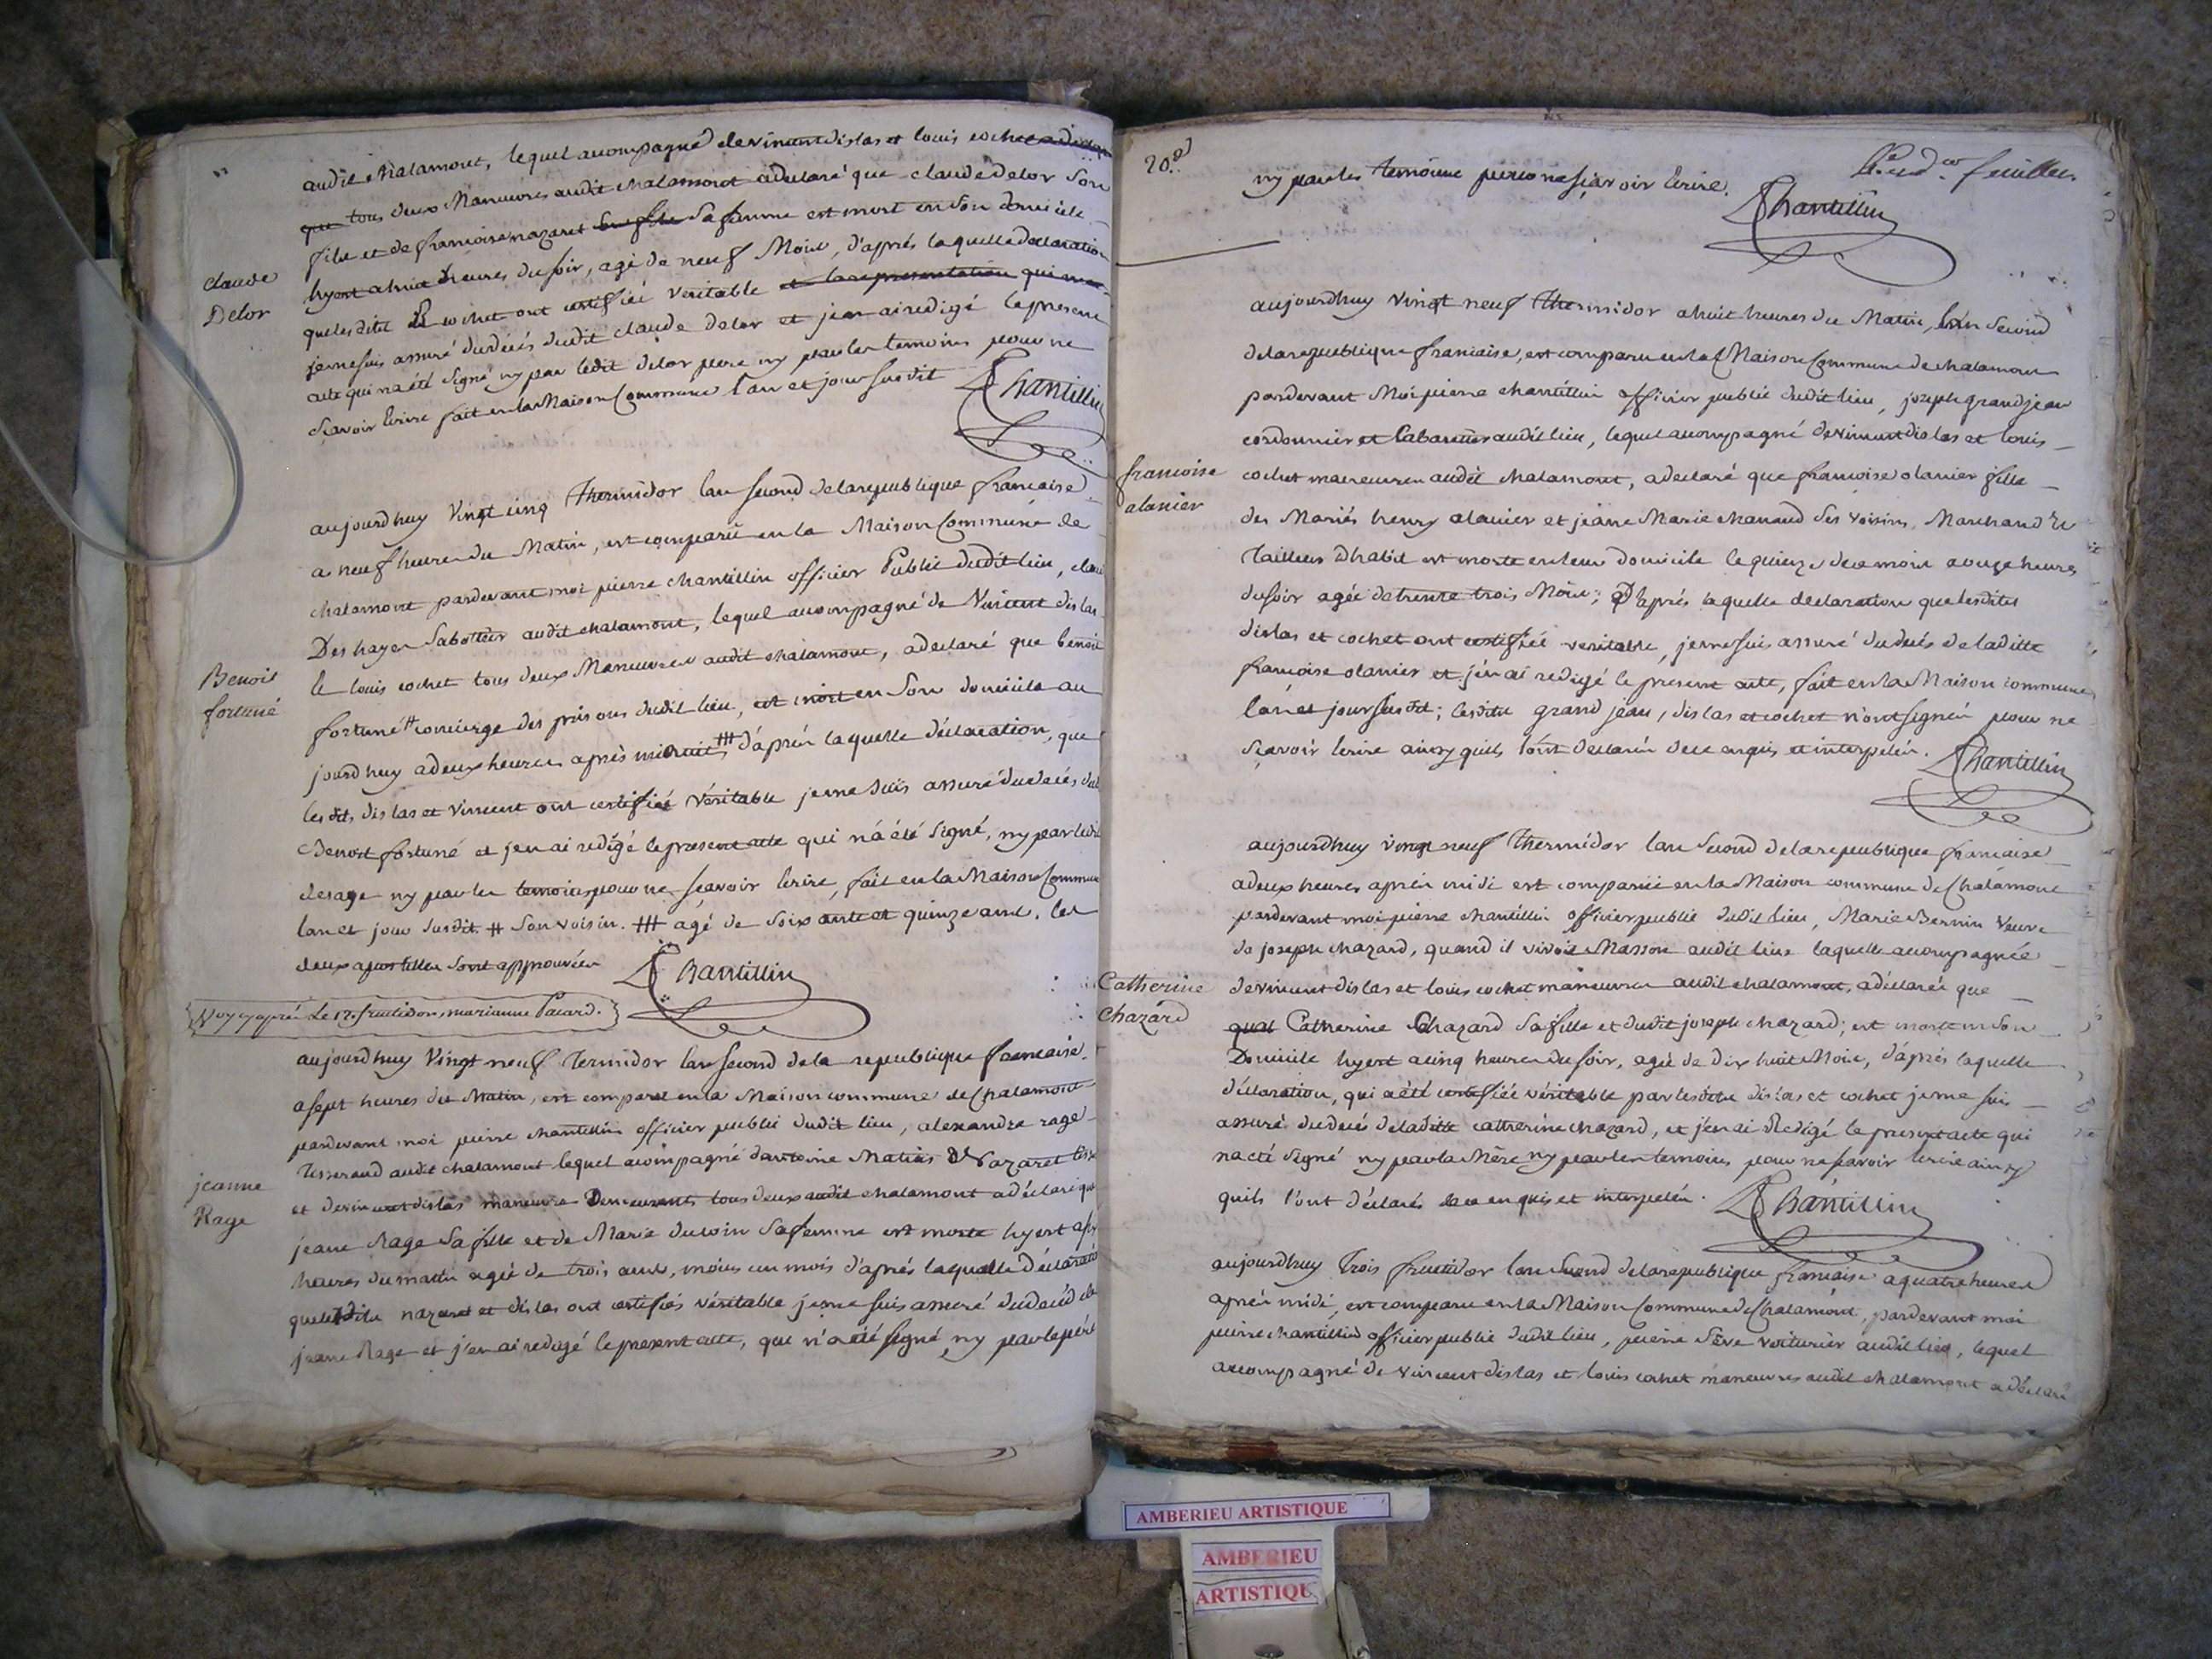 audit chalamont, lequel accompagné de vincent dislas et louis cochet
que tous deux Manuvres audit chalamont a declaré que claude Delor Son
fils et de francoise nazaret Sa femme est mort en Son domicile
hyert a huit heures du Soir, agé de neuf Mois, d'aprés laquelle declaration
claude
Delor
que lesdits cochet ont certifiée veritable et la representation
je me suis assuré du décés dudit claude delor et jen ai redigé le present
acte qui na été Signé ny par ledit delor pere ny par les temoins pour ne
Scavoir Ecrire fait en la Maison Commune l'an et jour Susdit
Chantillin
aujourdhuy Vingt cinq Thermidor lan Second de la republique francaise
a neuf heures du Matin, est comparû en la Maison Commune de
chalamont pardevant moi pierre chantillin officier Public dudit lieu,
Deshayes Sabottier audit chalamont, lequel accompagné de Vincent dislas
Benoit
fortuné
le louis cochet tous deux Manuvres audit chalamont, a declaré que benoit
fortuné # concierge des prisons dudit lieu, est mort en Son domicile au
jourdhuy a deux heures aprés minuit ## d'aprés laquelle déclaration, que
lesdits dislas et vincent ont certifiée véritable je me Suis assuré du decés dudit
Benoit fortuné et jen ai redigé le present acte qui n'a été Signé, ny par ledit
ny par les temoins pour ne Scavoir Ecrire, fait en la Maison Commune
lan et jour Susdit. # Son voisin. ## agé de Soixante et quinze ans. les
deux apostilles Sont approuvées
Chantillin
Voyez aprés le 17. fructidor, marianne Pacard.
aujourdhuy Vingt neuf Termidor lan Second de la republique francaise.
a Sept heures du Matin, est comparu en la Maison commune de Chalamont
pardevant moi pierre chantillin officier public dudit lieu, alexandre rage
Tisserand audit chalamont lequel acompagné dantoine Nazaret
jeanne
Rage
et de vincent dislas manuvre Demeurants tous deux audit chalamont a déclaré que
jeane Rage Sa fille et de Marie Sa femme est morte hyert a
heures du matin agée de trois ans, moins un mois d'aprés laquelle déclaration
que lesdits nazaret et dislas ont certifiés véritable je me suis assuré du decéd de
jeane Rage et j'en ai redigé le present acte, que n'a été Signé, ny par le pére
20.e
feuillet.
ny par les temoins pour ne Sçavoir Ecrire.
Chantillin
aujourdhuy vingt neuf Thermidor a huit heures du Matin, L'an Second
de la republique francaise, est comparu en la Maison Commune de chalamont
pardevant Moi pierre chantillin officier public dudit lieu, joseph grandjean
cordonnier et Cabaretier audit lieu, lequel accompagné de vincent dislas et louis
francoise
olanier
cochet manuvres audit chalamont, a declaré que francoise olanier fille
des Mariés henry olanier et jeane Marie chanaud Ses voisins, Marchand Et
Tailleur D'habit est morte en leur domicile le quinze de ce mois a onze heures
du Soir agée de trente trois Mois; D'aprés laquelle declaration que lesdits
dislas et cochet ont certifiée veritable, je me suis assuré du decés de laditte
francoise olanier et j'en ai redigé le present acte, fait en la Maison commune,
lán et jour Susdit; lesdits grand jean, dislas et cochet n'ont Signés pour ne
Sçavoir Ecrire ainsy quils l'ont declarés de ce enquis et interpelés.
Chantillin
aujourdhuy vingt neuf Thermidor lan Second de la republique francaise
a deux heures aprés midi est comparüe en la Maison commune de Chalamont
pardevant moi pierre chantillin officier public dudit lieu, Marie Bernin veuve
de joseph chazard, quand il vivoit Masson audit lieu laquelle accompagnée
Catherine
Chazard
de vincent dislas et louis cochet manuvres audit chalamont, a déclaré que
qual Catherine Chazard Sa fille et dudit joseph chazard; est morte en Son
Domicile hyert a cinq heures du Soir, agée de dix huit Mois, d'aprés laquelle
déclaration, qui a été certifiée véritable par lesdits dislas et cochet je me suis
assuré du decés de laditte catherine chazard, et j'en ai Redigé le present acte qui
na été Signé ny par la Mére ny par les temoins pour ne Sçavoir Ecrire ainsy
quils l'ont déclarés de ce enquis et interpelés.
Chantillin
aujourdhuy Trois fructidor lan Second de la republique francaise a quatre heures
aprés midi, est comparu en la Maison Commune de Chalamont, pardevant moi
pierre chantillin officier public dudit lieu, pierre Séve voiturier audit lieu, lequel
accompagné de vincent dislas et louis cochet manuvres audit chalamont a déclaré
AMBERIEU ARTISTIQUE
AMBERIEU
ARTISTIQU